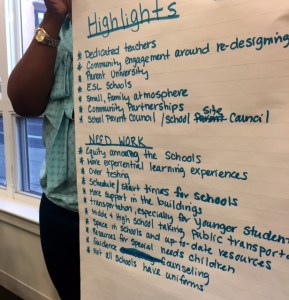 Highlights
* Dedicated teachers
* Community Engagement around re-designing
* Parent University
* ESL Schools
* Small, family atmosphere
* Community Partnerships
* School Parent Council / School Site Council
NEED WORK
* Equity among the Schools
* More experiential learning experiences
* Over testing
* Schedule / start times for schools
* More support in the buildings
* Transportation, especially for younger student
* Middle & High School taking public transporta
* Space in schools and up-to-date resources
* Resources for special needs children
* Guidance Counseling
* Not all Schools have uniforms